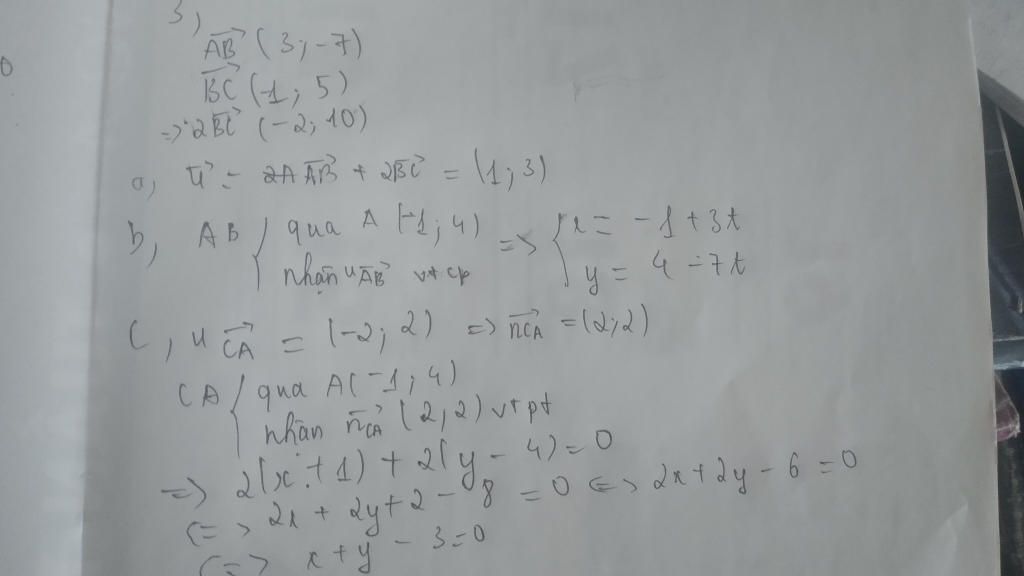 3,
AB→ (3; -7)
BC→ (-1; 5)
=> 2BC→ (-2; 10)
a, u→ = AB→ + 2BC→ = (1; 3)
b, AB { qua A (-1; 4) => { x = -1 + 3t
nhận uAB→ vtcp y = 4 - 7t
C, u CA→ = (-2; 2) => nCA→ = (2; 2)
CA { qua A(-1; 4)
nhận nCA→ (2; 2) vtpt
=> 2(x + 1) + 2(y - 4) = 0
<=> 2x + 2y + 2 - 8 = 0 <=> 2x + 2y - 6 = 0
<=> x + y - 3 = 0